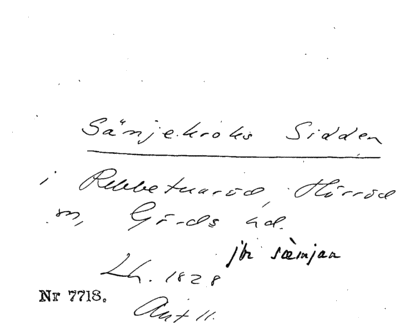 Sänjekroks Sidden
i Rebbetuaröd, Hörröd
sn, Gärds hd.
jfr sämjan
Lh. 1828
Nr 7718.
Ant 11.